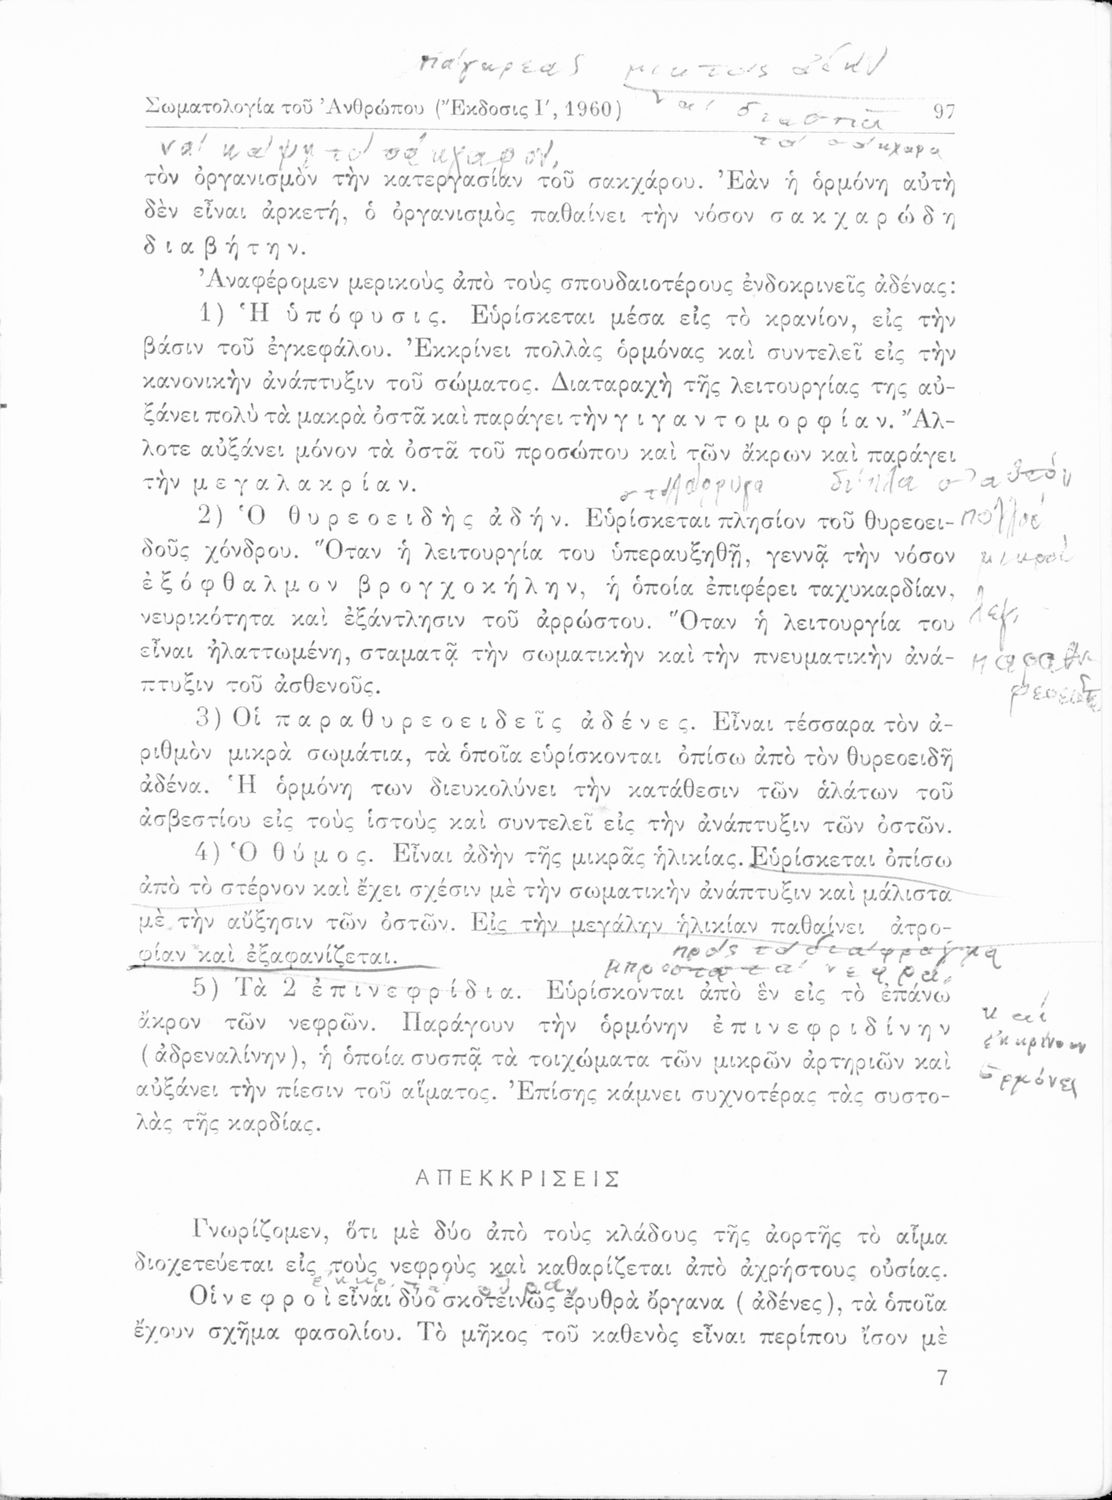 πάγκρεας μικτὸς ἀδὴν
Σωματολογία τοῦ Ἀνθρώπου (Ἔκδοσις Ι΄, 1960) 97
καὶ διασπᾶ
τὸ σάκχαρο
νὰ κάψη τὸ σάκχαρον,
τὸν ὀργανισμὸν τὴν κατεργασίαν τοῦ σακχάρου. Ἐὰν ἡ ὁρμόνη αὐτὴ
δὲν εἶναι ἀρκετή, ὁ ὀργανισμὸς παθαίνει τὴν νόσον σακχαρώδη
διαβήτην.
Ἀναφέρομεν μερικοὺς ἀπὸ τοὺς σπουδαιοτέρους ἐνδοκρινεῖς ἀδένας:
1) Ἡ ὑπόφυσις. Εὑρίσκεται μέσα εἰς τὸ κρανίον, εἰς τὴν
βάσιν τοῦ ἐγκεφάλου. Ἐκκρίνει πολλὰς ὁρμόνας καὶ συντελεῖ εἰς τὴν
κανονικὴν ἀνάπτυξιν τοῦ σώματος. Διαταραχὴ τῆς λειτουργίας της αὐ-
ξάνει πολὺ τὰ μακρὰ ὀστᾶ καὶ παράγει τὴν γιγαντομορφίαν. Ἄλ-
λοτε αὐξάνει μόνον τὰ ὀστᾶ τοῦ προσώπου καὶ τῶν ἄκρων καὶ παράγει
τὴν μεγαλακρίαν.
δίπλα σ' αὐτὸν
2) Ὁ θυρεοειδὴς ἀδήν. Εὑρίσκεται πλησίον τοῦ θυρεοει-
πολλοὶ
δοῦς χόνδρου. Ὅταν ἡ λειτουργία του ὑπεραυξηθῇ, γεννᾷ τὴν νόσον
μικροὶ
ἐξόφθαλμον βρογχοκήλην, ἡ ὁποία ἐπιφέρει ταχυκαρδίαν,
λεγ.
νευρικότητα καὶ ἐξάντλησιν τοῦ ἀρρώστου. Ὅταν ἡ λειτουργία του
εἶναι ἠλαττωμένη, σταματᾷ τὴν σωματικὴν καὶ τὴν πνευματικὴν ἀνά-
πτυξιν τοῦ ἀσθενοῦς.
3) Οἱ παραθυρεοειδεῖς ἀδένες. Εἶναι τέσσαρα τὸν ἀ-
ριθμὸν μικρὰ σωμάτια, τὰ ὁποῖα εὑρίσκονται ὀπίσω ἀπὸ τὸν θυρεοειδῆ
ἀδένα. Ἡ ὁρμόνη των διευκολύνει τὴν κατάθεσιν τῶν ἁλάτων τοῦ
ἀσβεστίου εἰς τοὺς ἱστοὺς καὶ συντελεῖ εἰς τὴν ἀνάπτυξιν τῶν ὀστῶν.
4) Ὁ θύμος. Εἶναι ἀδὴν τῆς μικρᾶς ἡλικίας. Εὑρίσκεται ὀπίσω
ἀπὸ τὸ στέρνον καὶ ἔχει σχέσιν μὲ τὴν σωματικὴν ἀνάπτυξιν καὶ μάλιστα
μὲ τὴν αὔξησιν τῶν ὀστῶν. Εἰς τὴν μεγάλην ἡλικίαν παθαίνει ἀτρο-
φίαν καὶ ἐξαφανίζεται.
πρὸς τὸ διάφραγμα
μπροστὰ τὰ νεφρά,
5) Τὰ 2 ἐπινεφρίδια. Εὑρίσκονται ἀπὸ ἓν εἰς τὸ ἐπάνω
ἄκρον τῶν νεφρῶν. Παράγουν τὴν ὁρμόνην ἐπινεφριδίνην
καὶ
ἐκκρίνουν
(ἀδρεναλίνην), ἡ ὁποία συσπᾷ τὰ τοιχώματα τῶν μικρῶν ἀρτηριῶν καὶ
ὁρμόνες
αὐξάνει τὴν πίεσιν τοῦ αἵματος. Ἐπίσης κάμνει συχνοτέρας τὰς συστο-
λὰς τῆς καρδίας.
ΑΠΕΚΚΡΙΣΕΙΣ
Γνωρίζομεν, ὅτι μὲ δύο ἀπὸ τοὺς κλάδους τῆς ἀορτῆς τὸ αἷμα
διοχετεύεται εἰς τοὺς νεφροὺς καὶ καθαρίζεται ἀπὸ ἀχρήστους οὐσίας.
Οἱ νεφροὶ εἶναι δύο σκοτεινῶς ἐρυθρὰ ὄργανα (ἀδένες), τὰ ὁποῖα
ἔχουν σχῆμα φασολίου. Τὸ μῆκος τοῦ καθενὸς εἶναι περίπου ἴσον μὲ
7